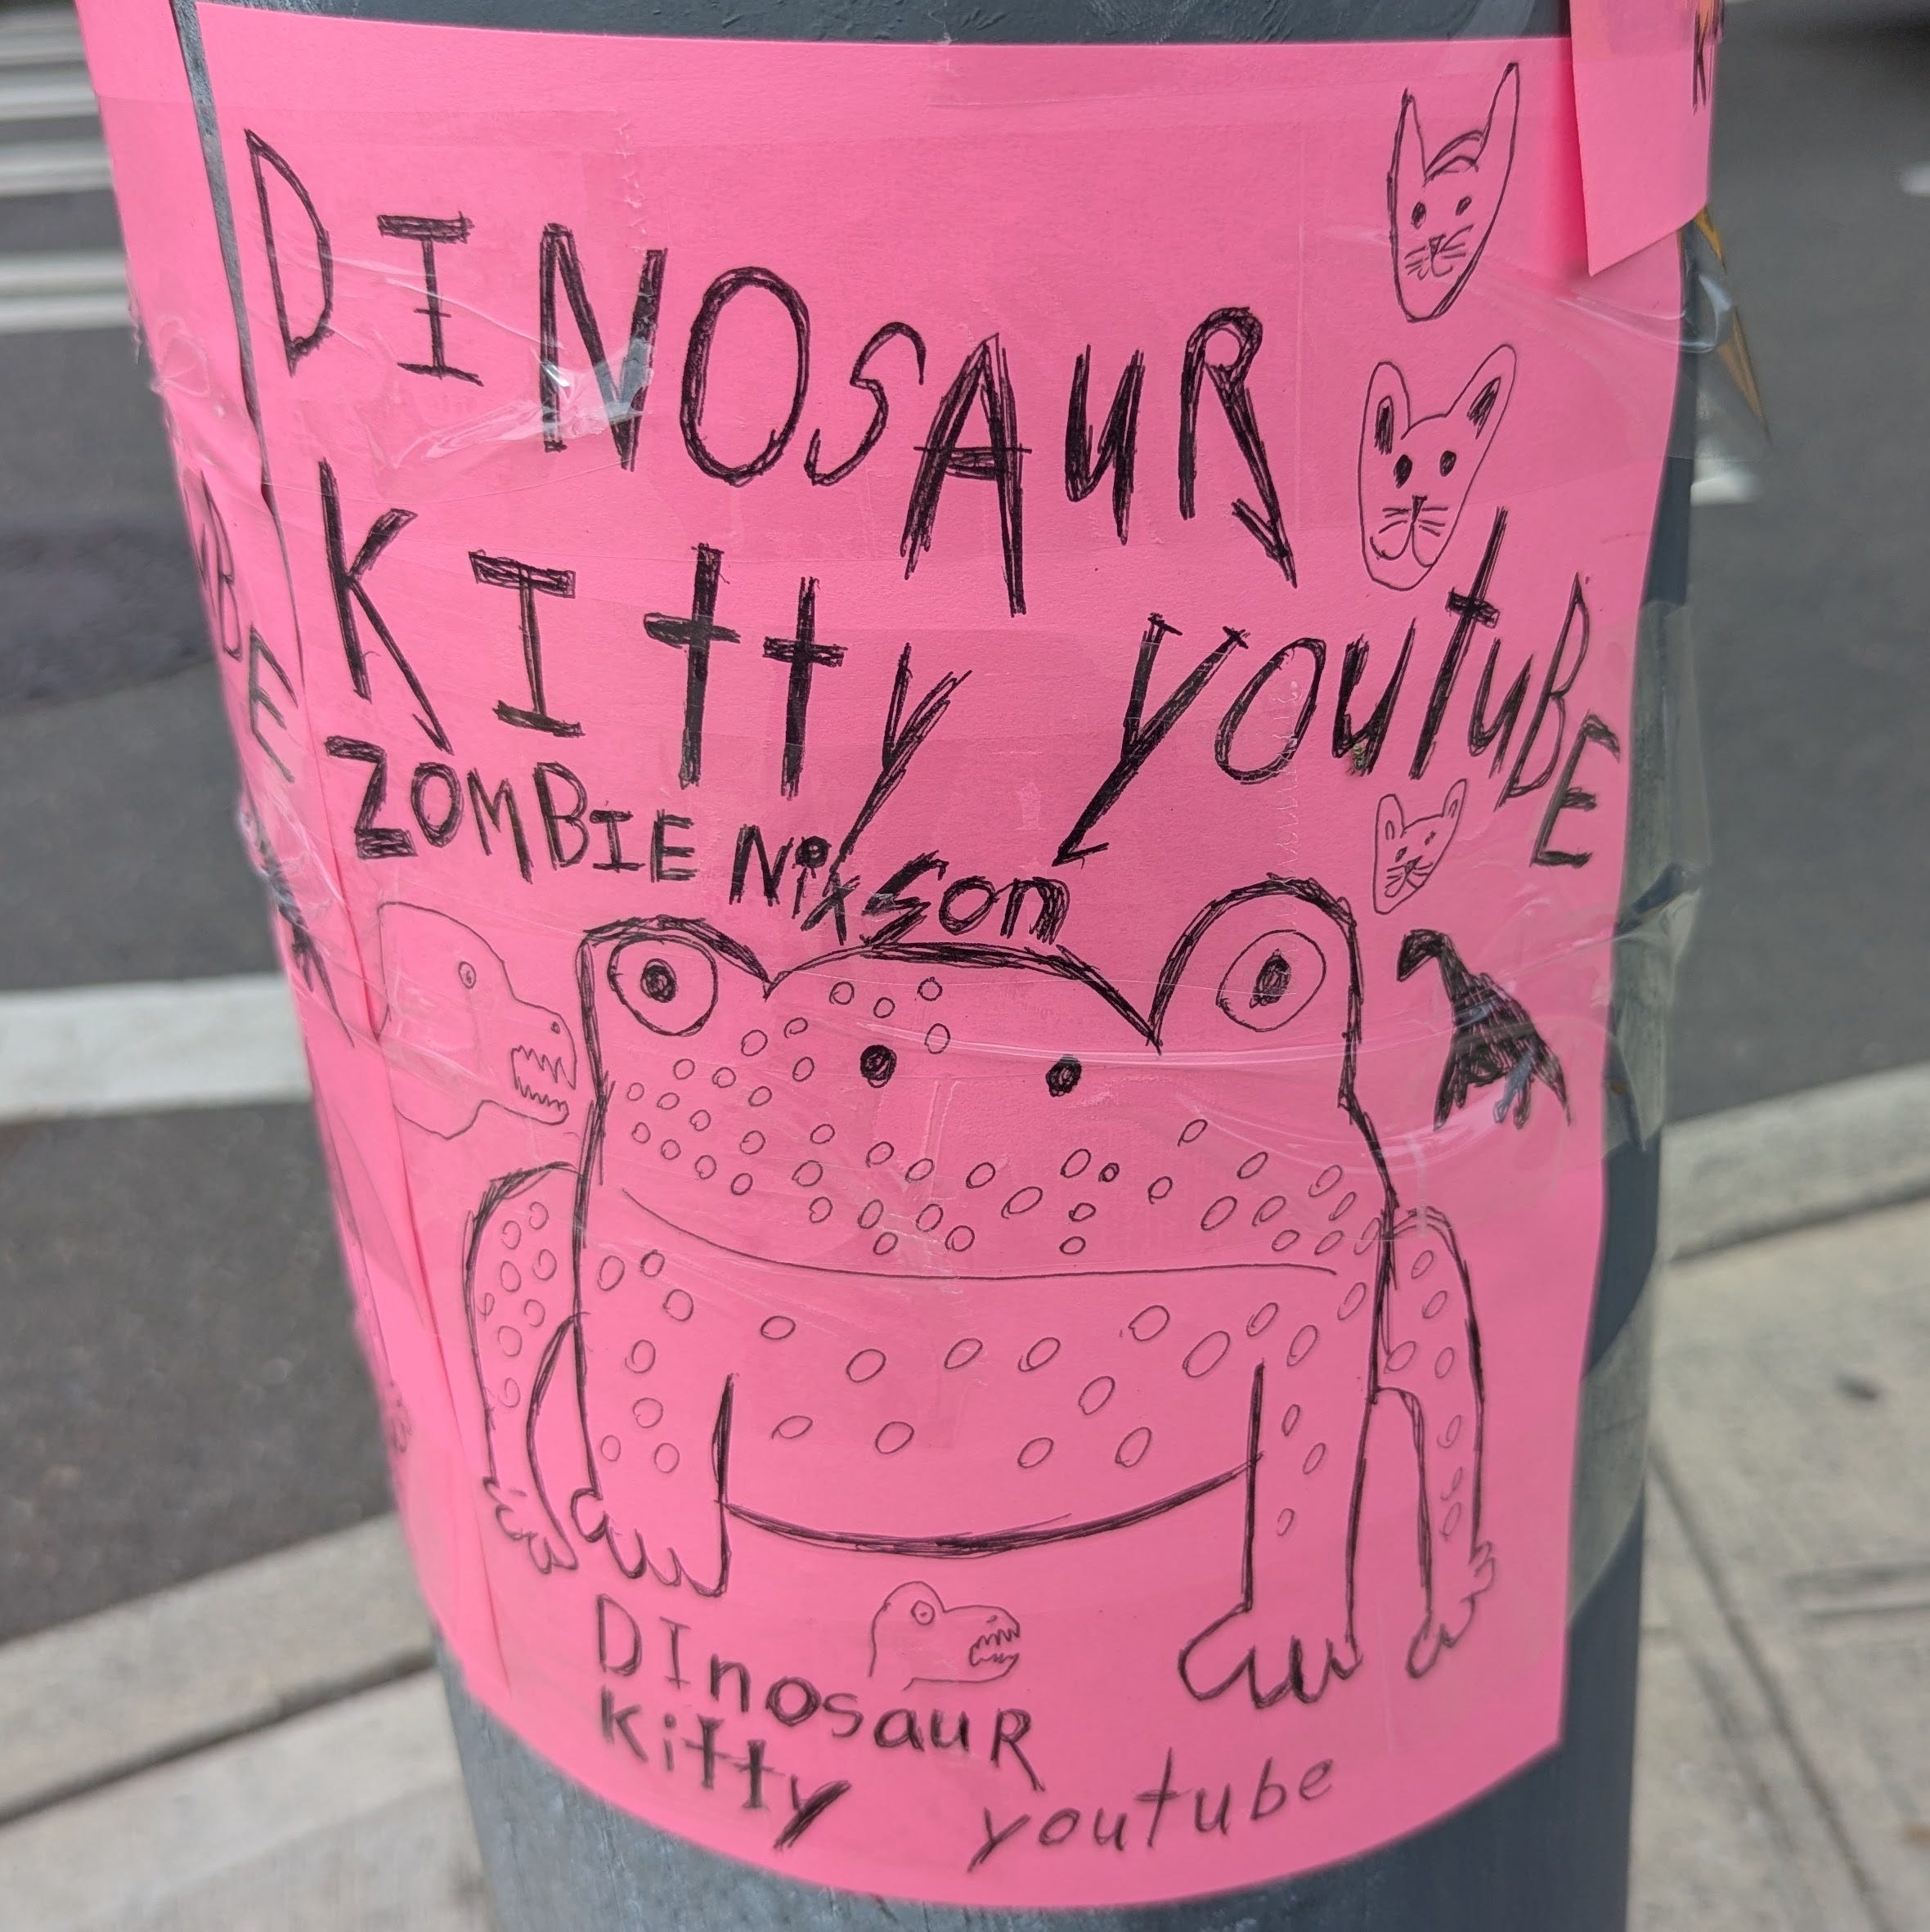 DINOSAUR
KItty youtuBE
ZOMBIE Nixson
DInosauR
Kitty youtube
UBE
K